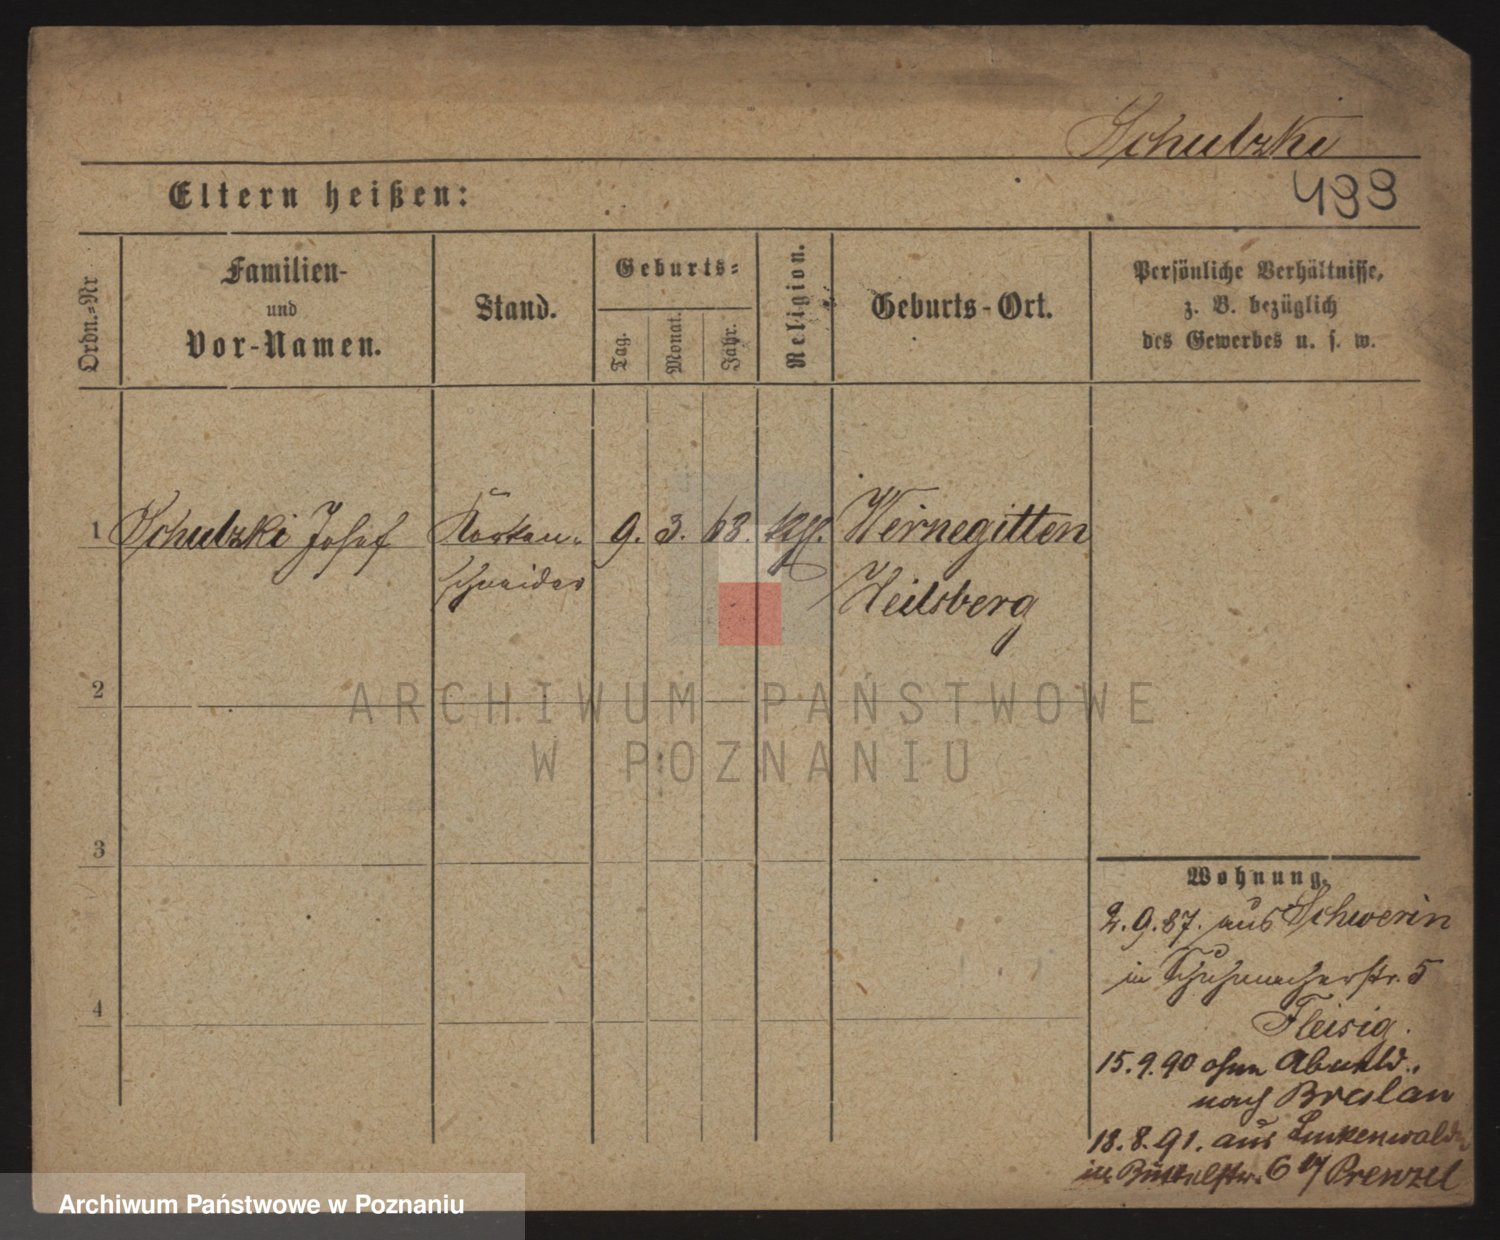 Schulzki
499
Eltern heißen:
Ordn.-Nr
Familien-
und
Vor-Namen.
Stand.
Geburts-
Tag.
Monat.
Jahr.
Religion.
Geburts-Ort.
Persönliche Verhältnisse,
z. B. bezüglich
des Gewerbes u. s. w.
1 Schulzki Josef 9. 3. 63. Wernegitten
schneider Heilsberg
2
ARCHIWUM PAŃSTWOWE
W POZNANIU
3
4
Wohnung.
2.9.87. aus Schwerin
in Schuhmacherstr. 5
Fleisig.
15.9.90 ohne Abmeld.
nach Breslau
18.8.91. aus
in Büttelstr. 6 Prenzel
Archiwum Państwowe w Poznaniu